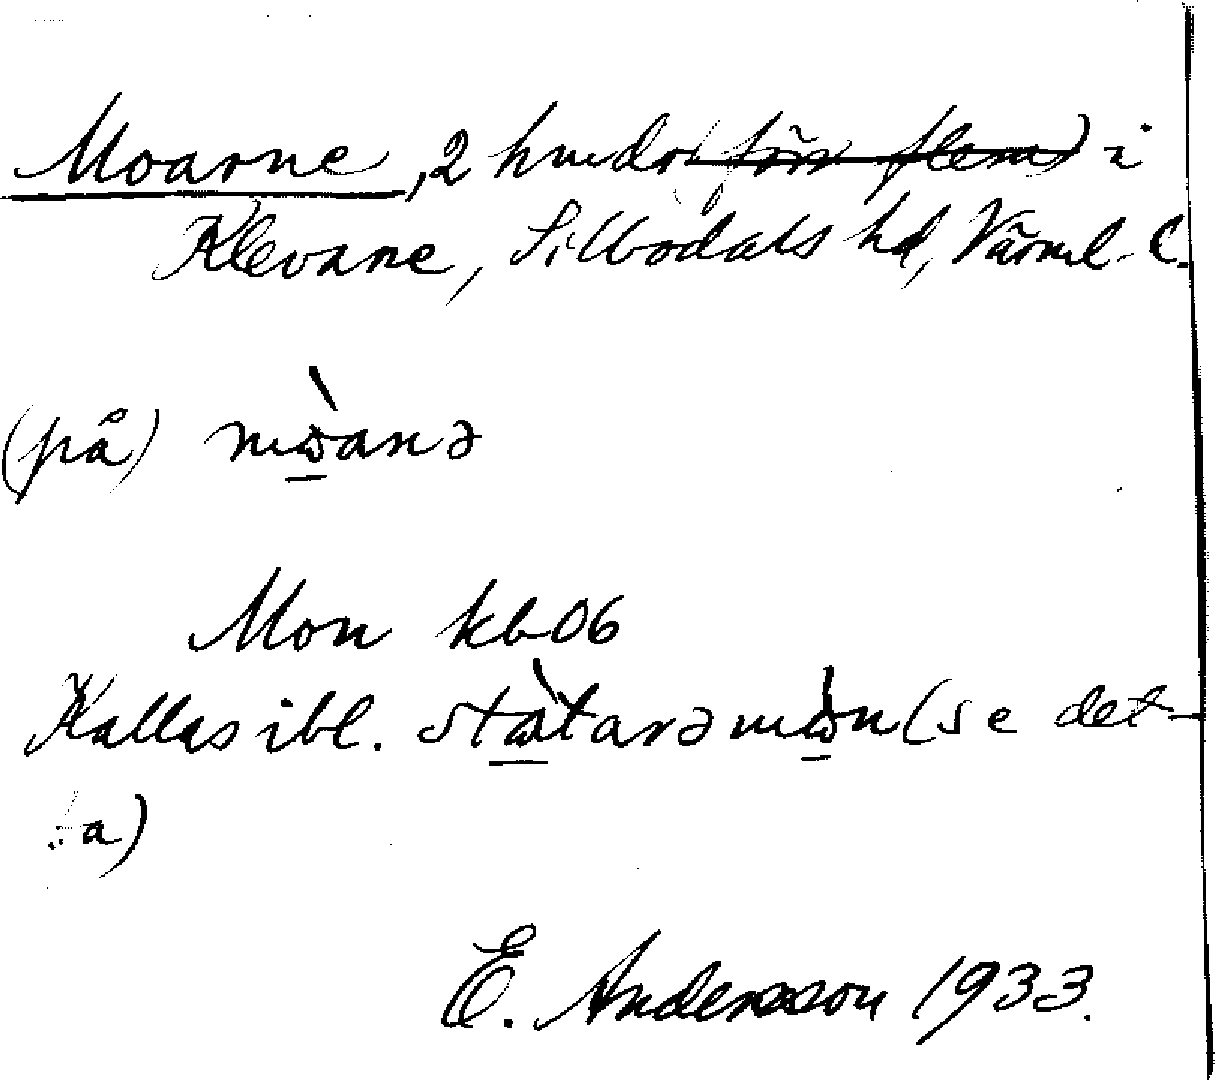 Moarne, 2 hmdr (förr flera) i
Klevane, Silbodals hd, Värml. l.
(på) mὼ̲anə
Mon kb 06
Kallas ibl. stὼ̲tarəmὼ̲n (se det-
ta)
E. Andersson 1933.